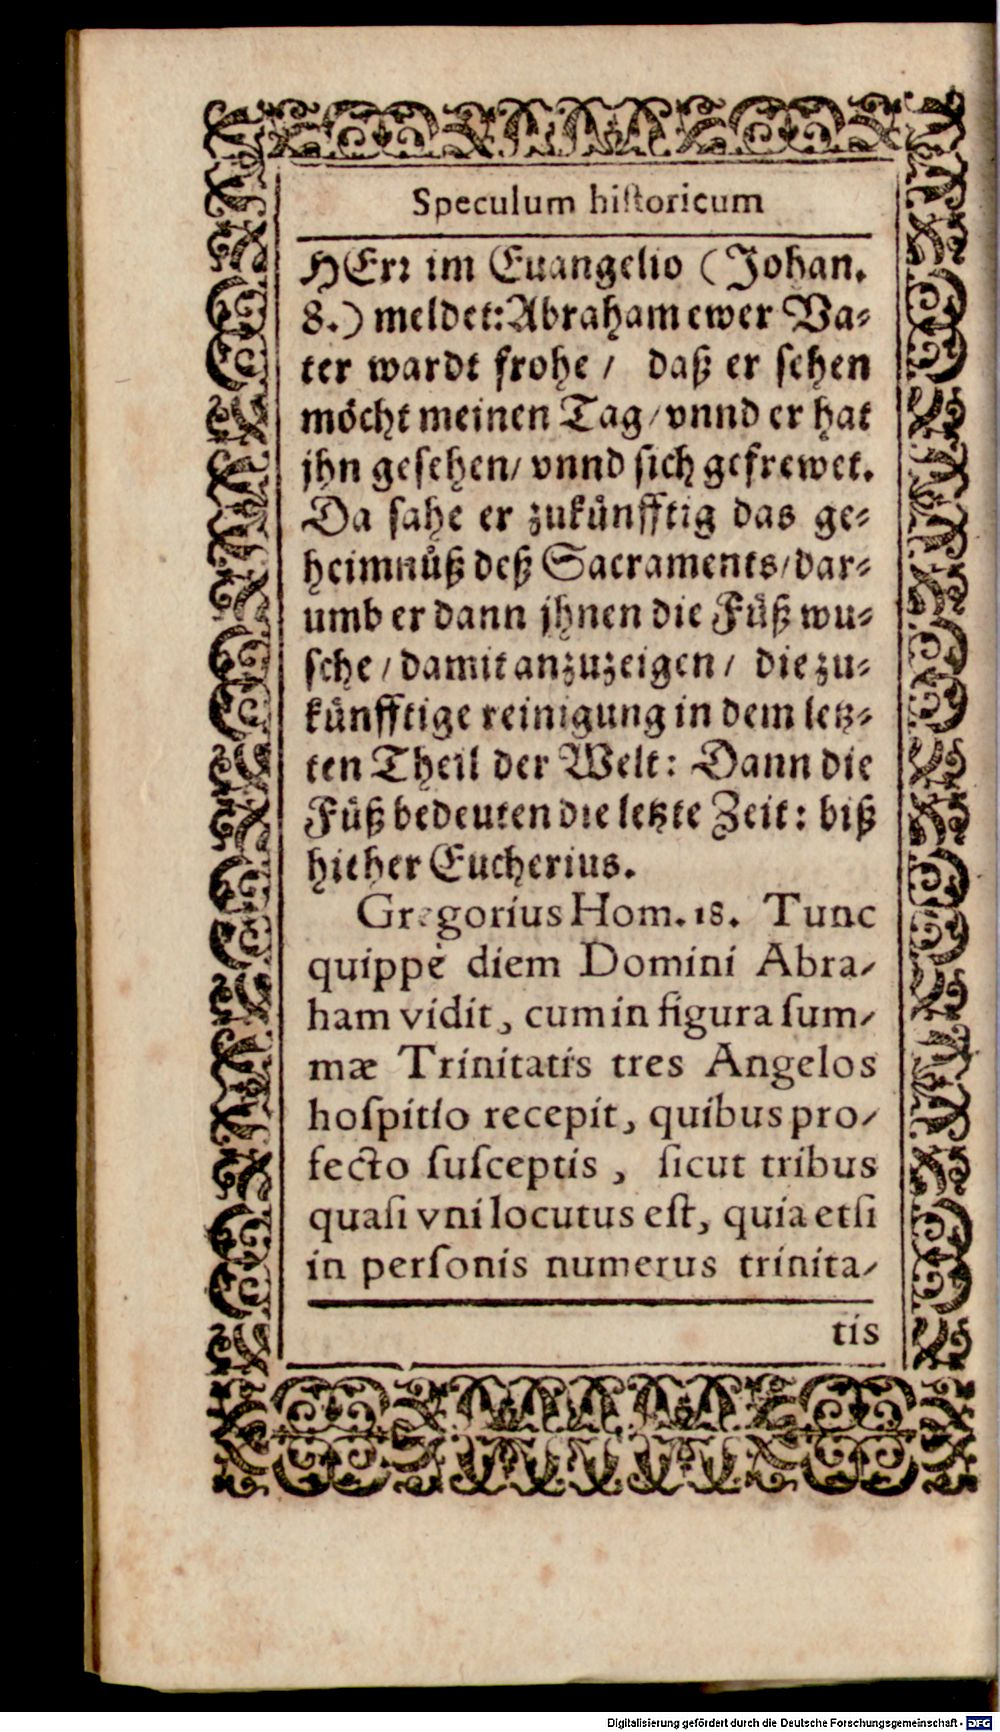 Speculum hiſtoricum
HErꝛ im Euangelio (Johan.
8.) meldet: Abraham ewer Va⸗
ter wardt frohe / daß er ſehen
möcht meinen Tag / vnnd er hat
jhn geſehen / vnnd ſich gefrewet.
Da ſahe er zukünfftig das ge⸗
heimnüß deß Sacraments / dar⸗
umb er dann jhnen die Füß wu⸗
ſche / damit anzuzeigen / die zu⸗
künfftige reinigung in dem letz⸗
ten Theil der Welt: Dann die
Füß bedeuten die letzte Zeit: biß
hieher Eucherius.
Gregorius Hom. 18. Tunc
quippè diem Domini Abra-
ham vidit, cum in figura ſum-
mæ Trinitatis tres Angelos
hoſpitio recepit, quibus pro-
fecto ſuſceptis, ſicut tribus
quaſi vni locutus eſt, quia etſi
in perſonis numerus trinita-
tis
Digitalisierung gefördert durch die Deutsche Forschungsgemeinschaft - DFG